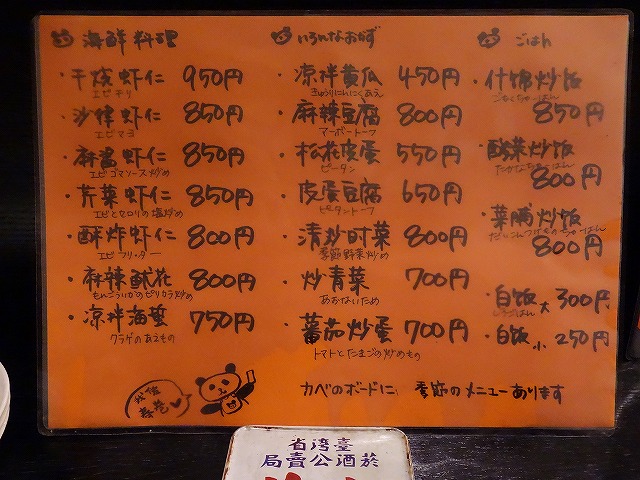 海鮮料理
・干焼虾仁 950円
エビチリ
・沙律虾仁 850円
エビマヨ
・麻醤虾仁 850円
エビゴマソース炒め
・芹菜虾仁 850円
エビとセロリの塩炒め
・酥炸虾仁 800円
エビフリッター
・麻辣魷花 800円
もんごういかのピリカラ炒め
・凉拌海蜇 750円
クラゲのあえもの
いろんなおかず
・凉拌黄瓜 450円
きゅうりにんにくあえ
・麻辣豆腐 800円
マーボートーフ
・松花皮蛋 550円
ピータン
・皮蛋豆腐 650円
ピータントーフ
・清炒时菜 800円
季節野菜炒め
・炒青菜 700円
あおないため
・蕃茄炒蛋 700円
トマトとたまごの炒めもの
ごはん
・什錦炒飯
ごもくちゃーはん
850円
・酸菜炒飯
たかなちゃーはん
800円
・菜脯炒飯
だいこんつけものちゃーはん
800円
・白飯 大 300円
しろごはん
・白飯 小 250円
カベのボードに 季節のメニューあります
臺灣省
菸酒公賣局